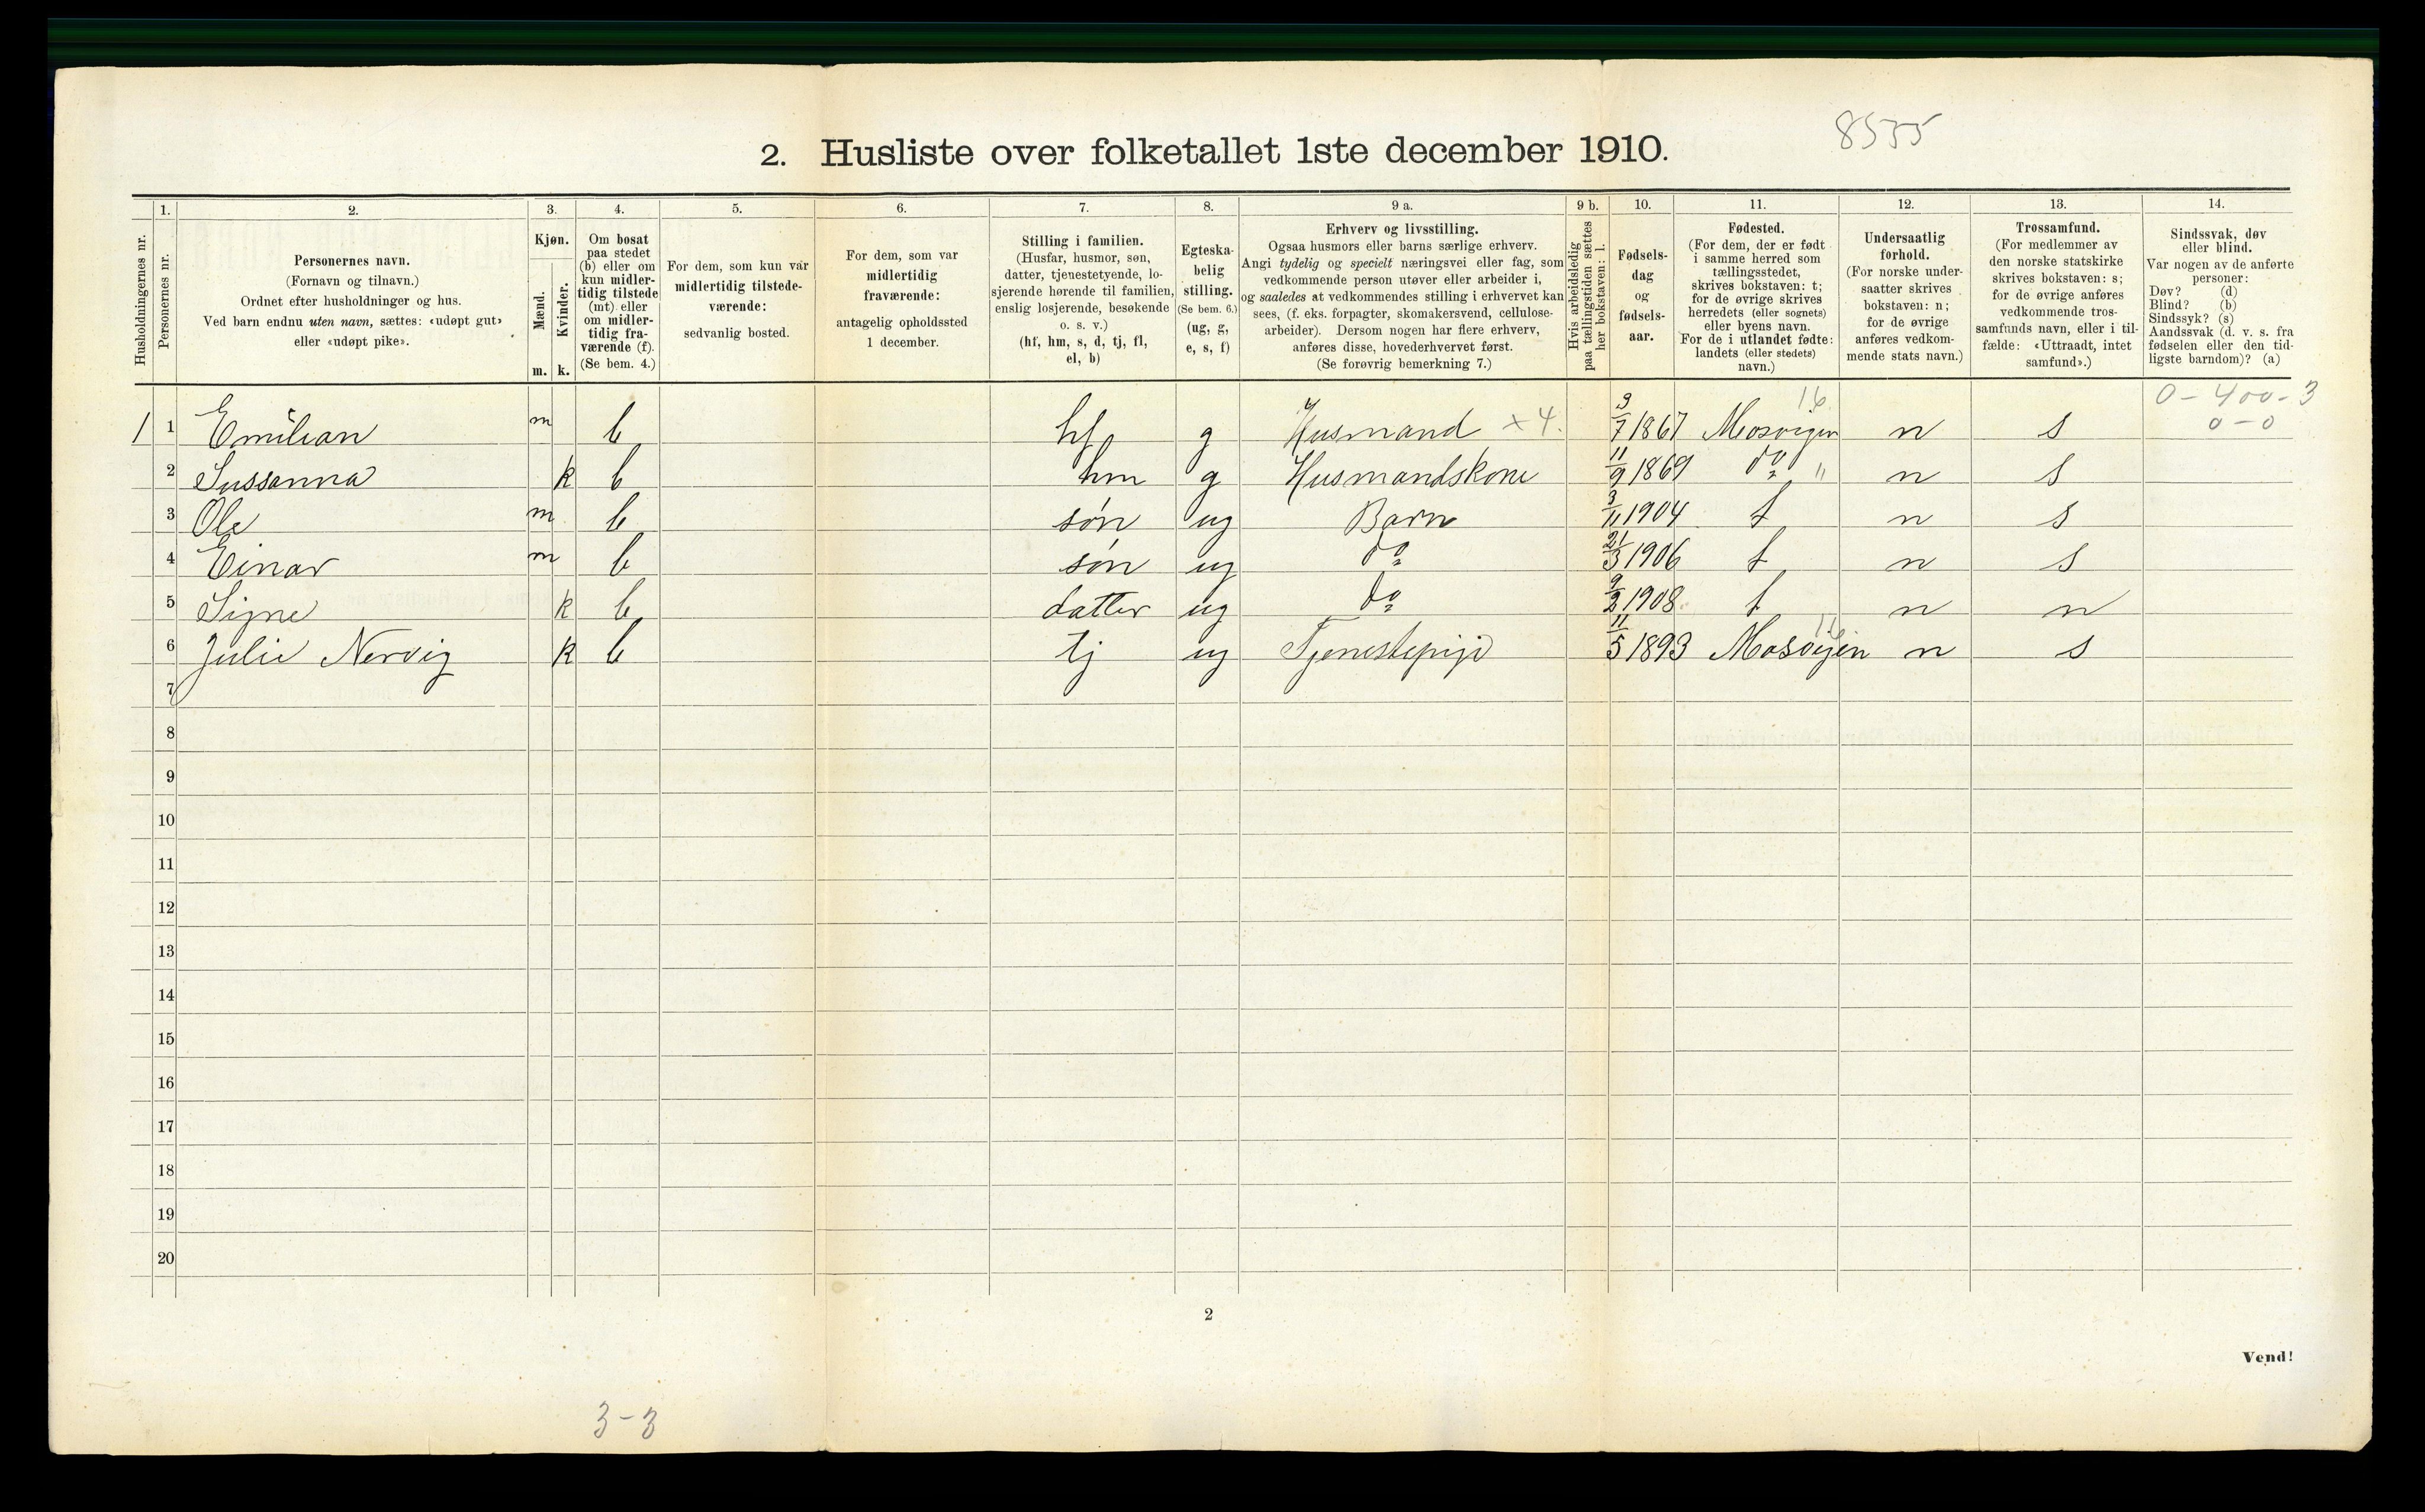 8535
2. Husliste over folketallet 1ste december 1910.
Husholdningernes nr.
1.
Personernes nr.
2.
Personernes navn.
(Fornavn og tilnavn.)
Ordnet efter husholdninger og hus.
Ved barn endnu uten navn, sættes: «udøpt gut»
eller «udøpt pike».
3.
Kjøn.
Mænd.
Kvinder.
m. k.
4.
Om bosat
paa stedet
(b) eller om
kun midler-
tidig tilstede
(mt) eller
om midler-
tidig fra-
værende (f).
(Se bem. 4.)
5.
For dem, som kun var
midlertidig tilstede-
værende:
sedvanlig bosted.
6.
For dem, som var
midlertidig
fraværende:
antagelig opholdssted
1 december.
7.
Stilling i familien.
(Husfar, husmor, søn,
datter, tjenestetyende, lo-
sjerende hørende til familien,
enslig losjerende, besøkende
o. s. v.)
(hf, hm, s, d, tj, fl,
el, b)
8.
Egteska-
belig
stilling.
(Se bem. 6.)
(ug, g,
e, s, f)
9 a.
Erhverv og livsstilling.
Ogsaa husmors eller barns særlige erhverv.
Angi tydelig og specielt næringsvei eller fag, som
vedkommende person utøver eller arbeider i,
og saaledes at vedkommendes stilling i erhvervet kan
sees, (f. eks. forpagter, skomakersvend, cellulose-
arbeider). Dersom nogen har flere erhverv,
anføres disse, hovederhvervet først.
(Se forøvrig bemerkning 7.)
9 b.
Hvis arbeidsledig
paa tællingstiden sættes
her bokstaven: l.
10.
Fødsels-
dag
og
fødsels-
aar.
11.
Fødested.
(For dem, der er født
i samme herred som
tællingsstedet,
skrives bokstaven: t;
for de øvrige skrives
herredets (eller sognets)
eller byens navn.
For de i utlandet fødte:
landets (eller stedets)
navn.)
12.
Undersaatlig
forhold.
(For norske under-
saatter skrives
bokstaven: n;
for de øvrige
anføres vedkom-
mende stats navn.)
13.
Trossamfund.
(For medlemmer av
den norske statskirke
skrives bokstaven: s;
for de øvrige anføres
vedkommende tros-
samfunds navn, eller i til-
fælde: «Uttraadt, intet
samfund».)
14.
Sindssvak, døv
eller blind.
Var nogen av de anførte
personer:
Døv? (d)
Blind? (b)
Sindssyk? (s)
Aandssvak (d. v. s. fra
fødselen eller den tid-
ligste barndom)? (a)
16 0-400-3
1 1 Emilian m b hf g Husmand x4. 9/7 1867 Mosvigen n s 0-0
2 Sussanna k b hm g Husmandskone 11/9 1869 do " n s
3 Ole m b søn ug Barn 3/11 1904 t n s
4 Einar m b søn ug do 21/3 1906 t n s
5 Signe k b datter ug do 9/2 1908 t n n
16
6 Julie Nervig k b tj ug Tjenestepige 11/5 1893 Mosvigen n s
7
8
9
10
11
12
13
14
15
16
17
18
19
20
2
Vend!
3-3